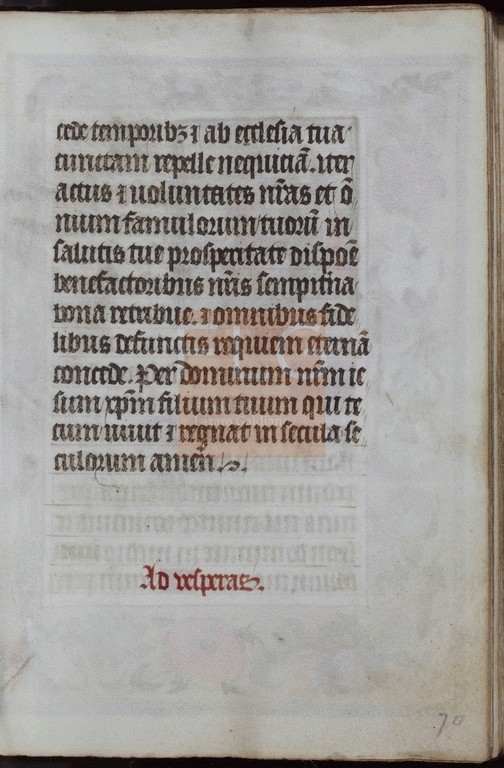 cede temporibꝫ ⁊ ab ecclesia tua
cunctam repelle nequiciā. iter
actus ⁊ uoluntates nr̄as et ō
nium famulorum tuorū in
salutis tue prosperitate dispōe
benefactoribus nr̄is sempitn̄a
bona retribue. ⁊ omnibus fide
libus defunctis requiem eternā
concede. Per dominum nr̄m ie
sum xp̄m filium tuum qui te
cum uiuit ⁊ regnat in secula se
culorum amen̄.
Ad vesperas.
70